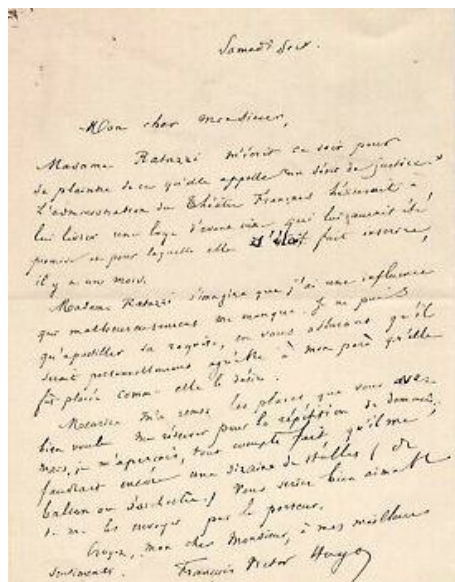 Samedi soir.
Mon cher Monsieur,
Madame Ratazzi m'écrit ce soir pour
se plaindre de ce qu'elle appelle "un déni de justice".
L'administration du Théâtre Français hésiterait à
lui livrer une loge d'avant-scène qui lui aurait été
promise et pour laquelle elle s'était fait inscrire,
il y a un mois.
Madame Ratazzi s'imagine que j'ai une influence
qui malheureusement me manque. Je ne puis
qu'apostiller sa requête, en vous assurant qu'il
serait personnellement agréable à mon père qu'elle
fût placée comme elle le désire.
Meurice m'a remis les places que vous avez
bien voulu me réserver pour la répétition de demain;
mais, je m'aperçois, tout compte fait, qu'il me
faudrait encore une dizaine de stalles (de
balcon ou d'orchestre.) Vous seriez bien aimable
de me les envoyer par le porteur.
Croyez, mon cher Monsieur, à mes meilleurs
sentiments. François Victor Hugo